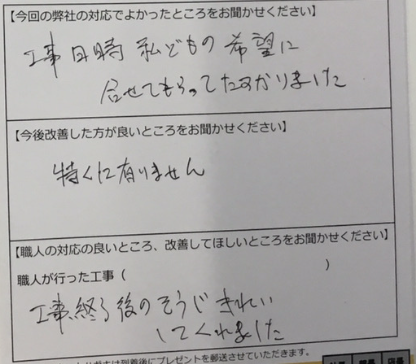 【今回の弊社の対応でよかったところをお聞かせください】
工事日時 私どもの希望に
合せてもらってたすかりました
【今後改善した方が良いところをお聞かせください】
特くに有りません
【職人の対応の良いところ、改善してほしいところをお聞かせください】
職人が行った工事（　　　）
工事終了後のそうじきれい
してくれました
は到着後にプレゼントを郵送させていただきます。